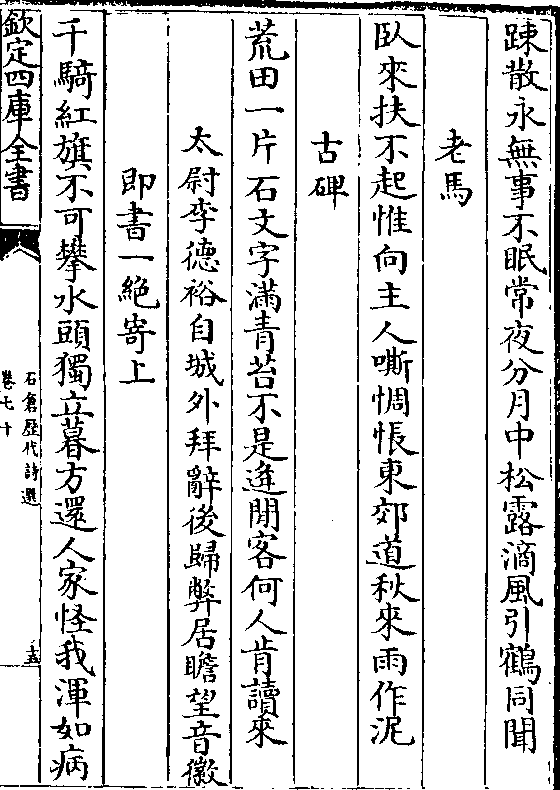 踈散永無事不眠常夜分月中松露滴風引鶴同聞
老馬
臥來扶不起惟向主人嘶惆悵東郊道秋來雨作泥
古碑
荒田一片石文字滿青苔不是逢閒客何人肯讀來
太尉李德裕自城外拜辭後歸弊居瞻望音徽
即書一絶寄上
千騎紅旗不可攀水頭獨立暮方還人家怪我渾如病
欽定四庫全書
石倉歷代詩選
卷七十
十五